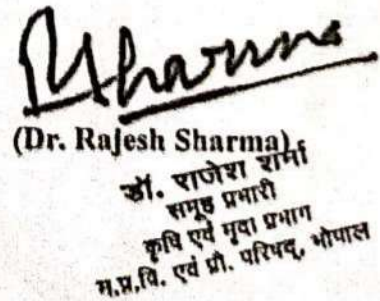 RSharma
(Dr. Rajesh Sharma)
डॉ. राजेश शर्मा
समूह प्रभारी
कृषि एवं मृदा प्रभाग
म.प्र.वि. एवं प्रौ. परिषद्, भोपाल